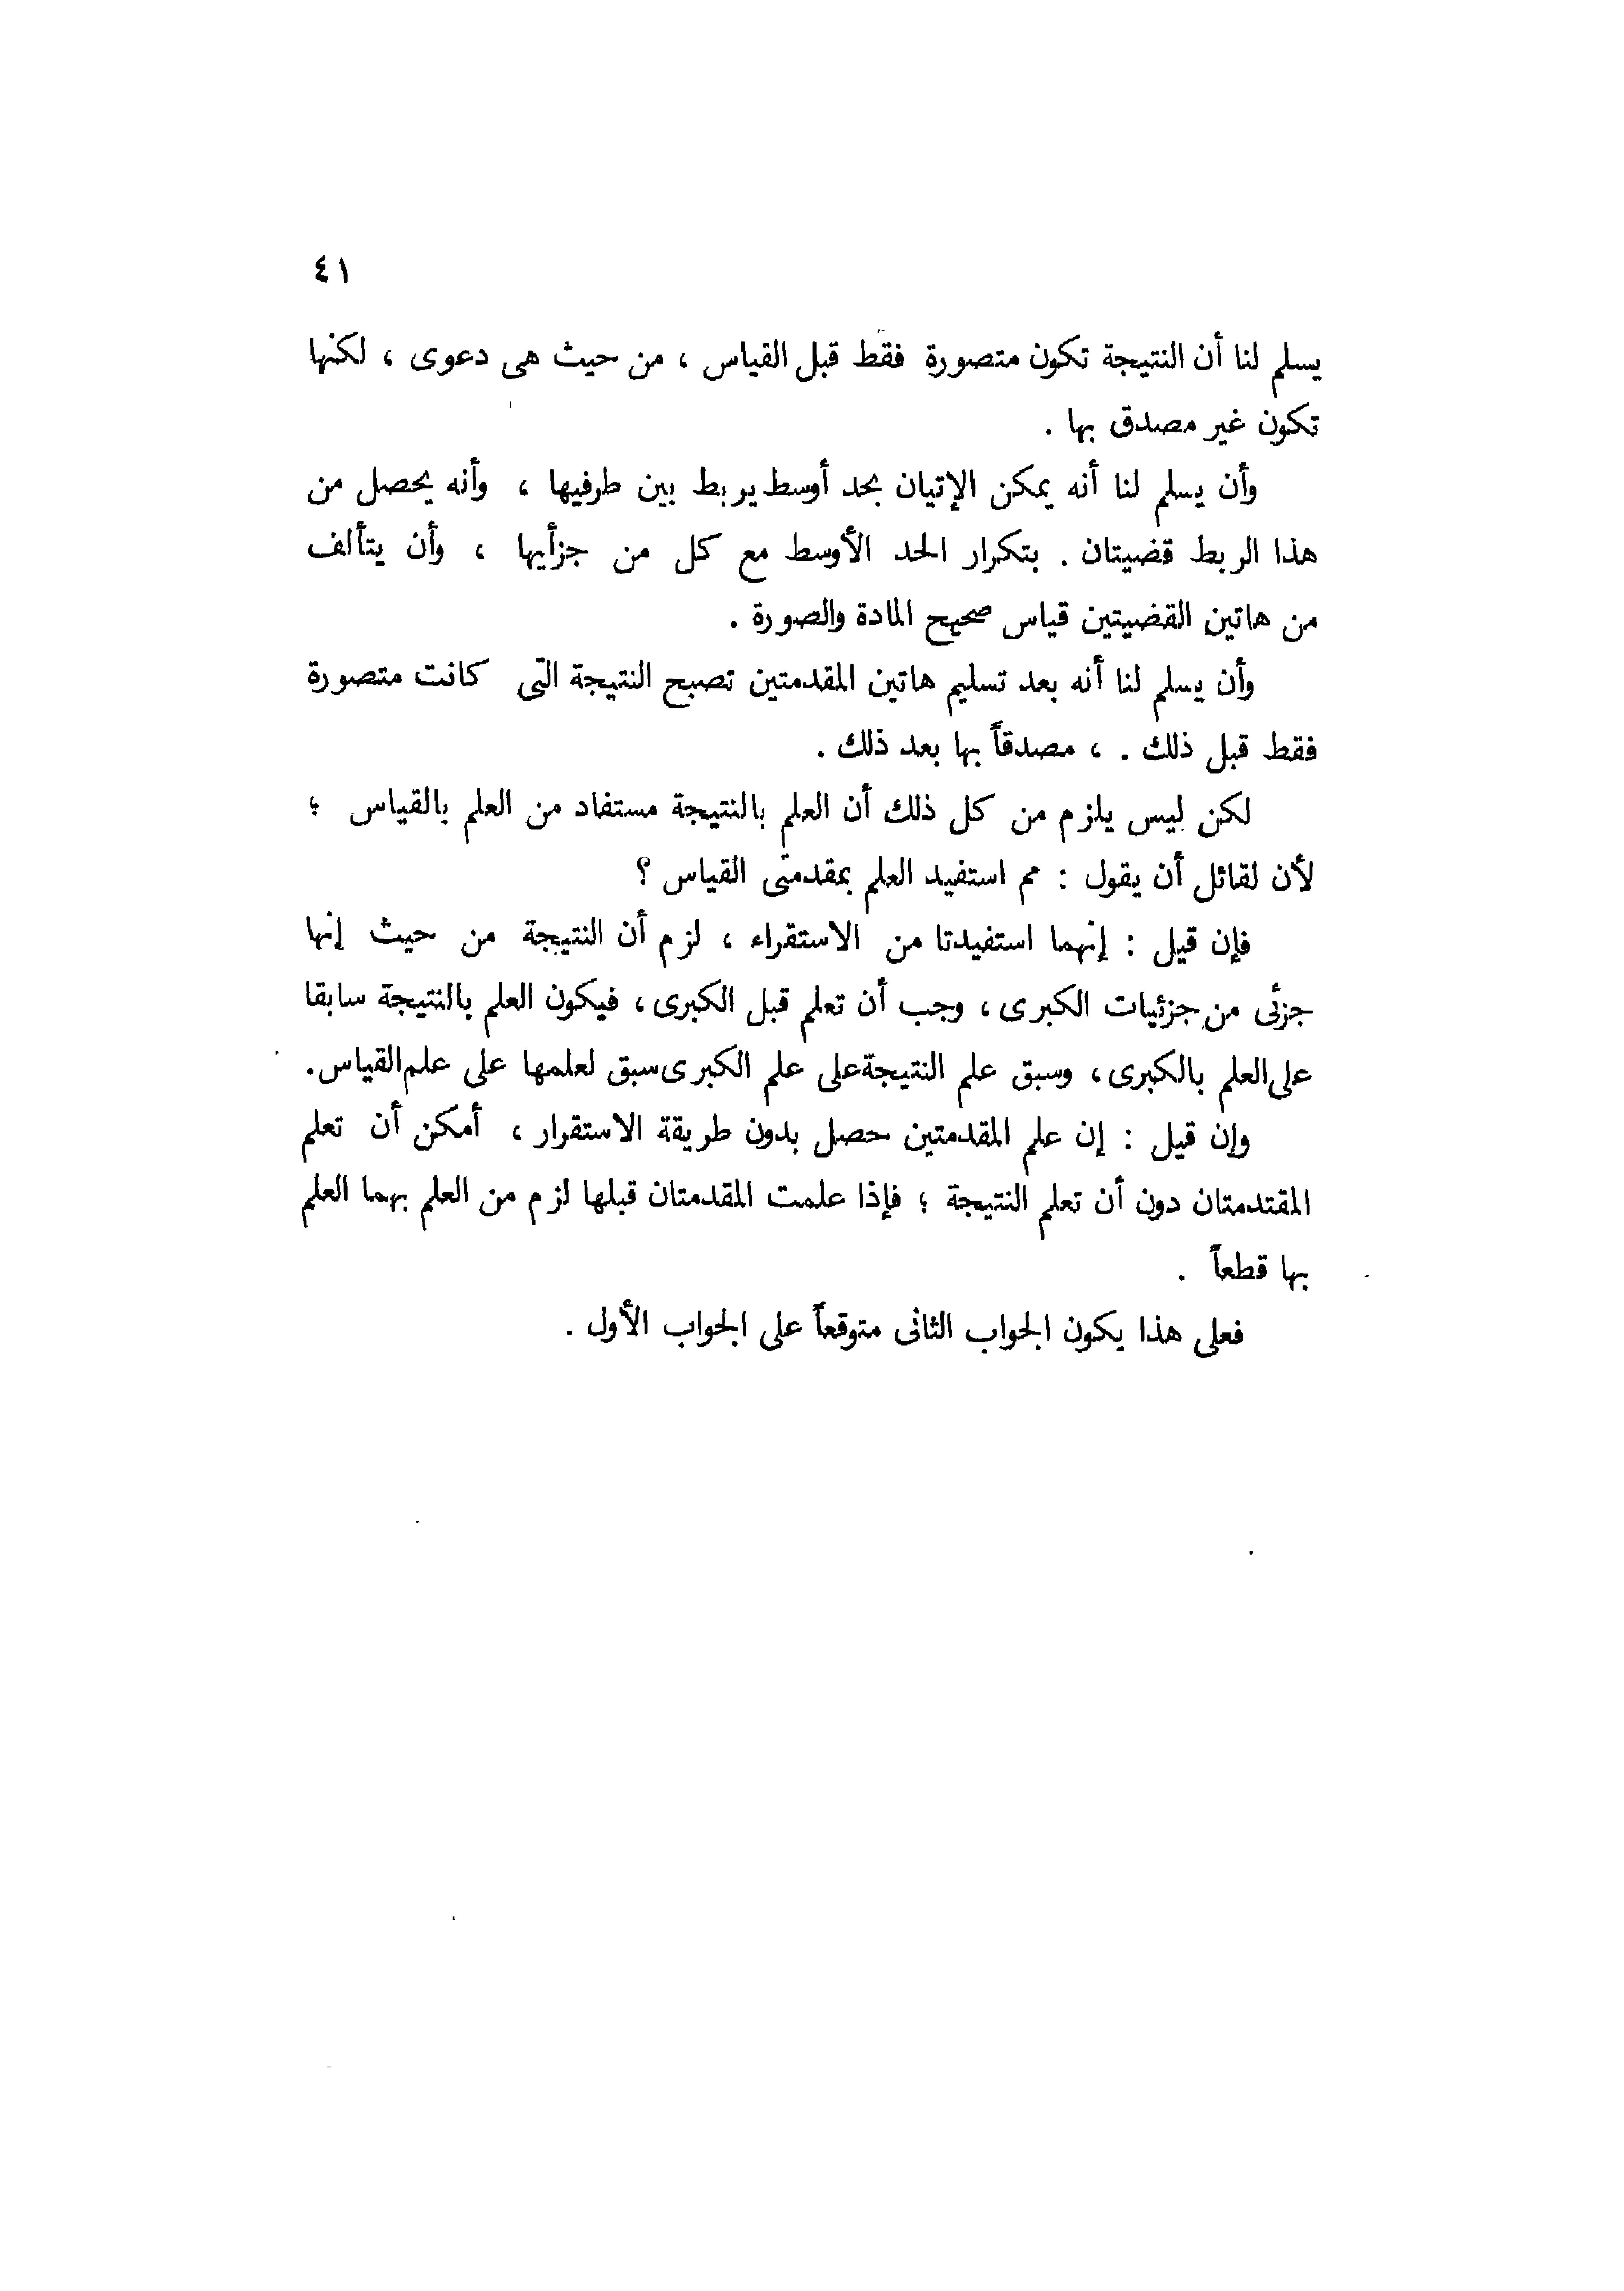 ٤١
يسلم لنا أن النتيجة تكون متصورة فقط قبل القياس ، من حيث هى دعوى ، لكنها
تكون غير مصدق بها .
وأن يسلم لنا أنه يمكن الإتيان بحد أوسط يربط بين طرفيها ، وأنه يحصل من
هذا الربط قضيتان . بتكرار الحد الأوسط مع كل من جزأيها ، وأن يتألف
من هاتين القضيتين قياس صحيح المادة والصورة .
وأن يسلم لنا أنه بعد تسليم هاتين المقدمتين تصبح النتيجة التى كانت متصورة
فقط قبل ذلك . ، مصدقاً بها بعد ذلك .
لكن ليس يلزم من كل ذلك أن العلم بالنتيجة مستفاد من العلم بالقياس ؛
لأن لقائل أن يقول : مم استفيد العلم بمقدمتى القياس ؟
فإن قيل : إنهما استفيدتا من الاستقراء ، لزم أن النتيجة من حيث إنها
جزئى من جزئيات الكبرى ، وجب أن تعلم قبل الكبرى ، فيكون العلم بالنتيجة سابقا
على العلم بالكبرى ، وسبق علم النتيجة على علم الكبرى سبق لعلمها على علم القياس .
وإن قيل : إن علم المقدمتين حصل بدون طريقة الاستقرار ، أمكن أن تعلم
المقتدمتان دون أن تعلم النتيجة ؛ فإذا علمت المقدمتان قبلها لزم من العلم بهما العلم
بها قطعاً .
فعلى هذا يكون الجواب الثانى متوقعاً على الجواب الأول .